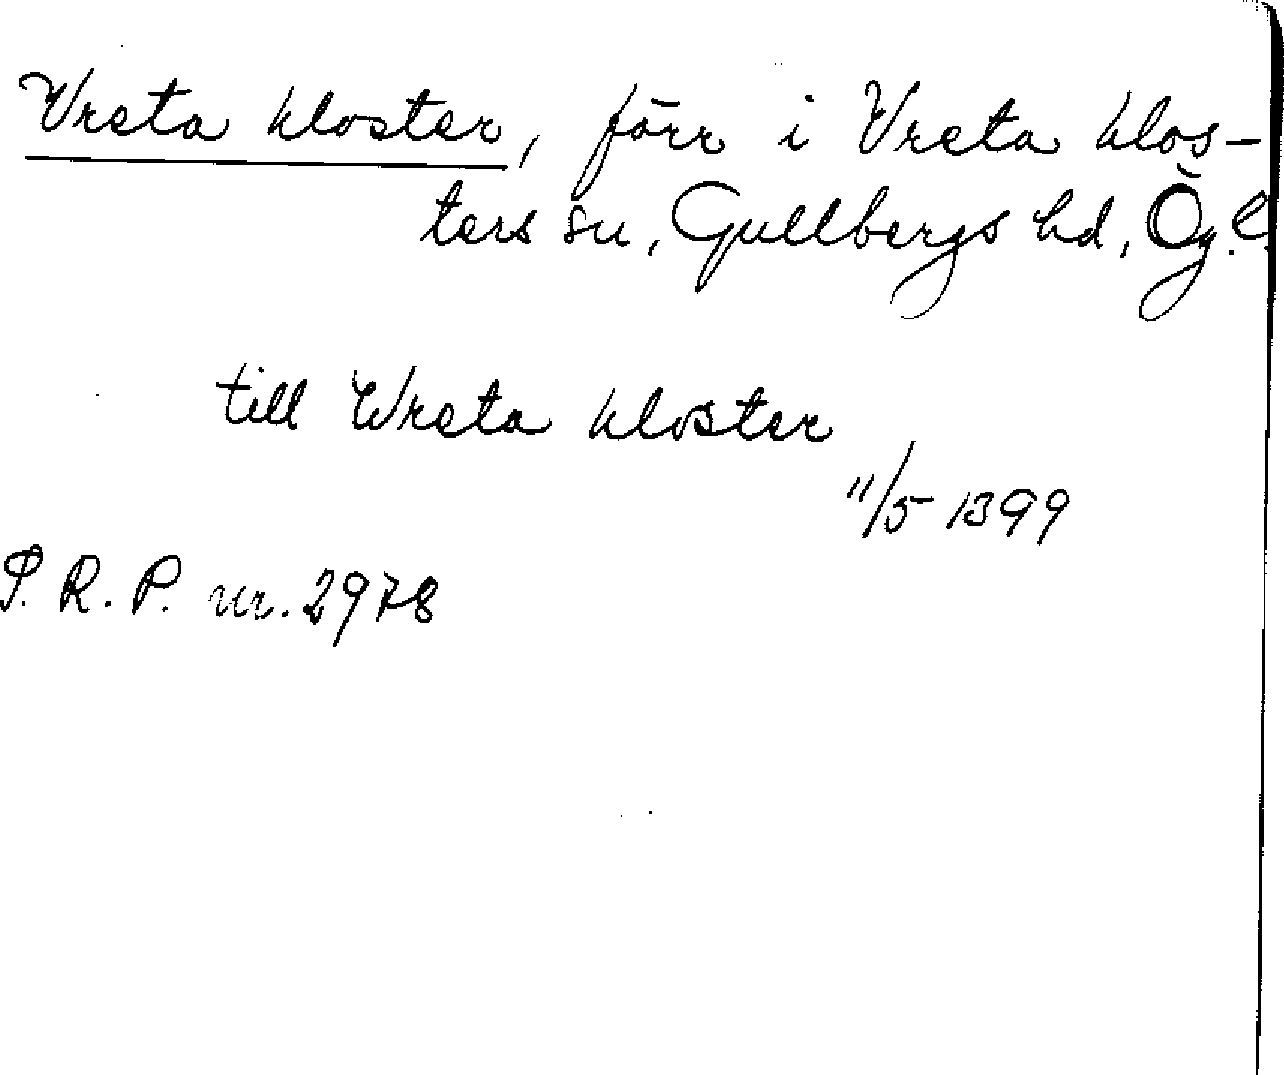 Vreta kloster, förr i Vreta klos-
ters sn, Gullbergs hd, Ög.l.
till Wreta kloster
11/5 1399
S.R.P. nr. 2978